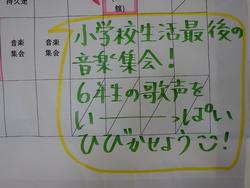 持久走
館)
音楽
集会
音楽
集会
小学校生活最後の
音楽集会!
6年生の歌声を
い―――っぱい
ひびかせよう